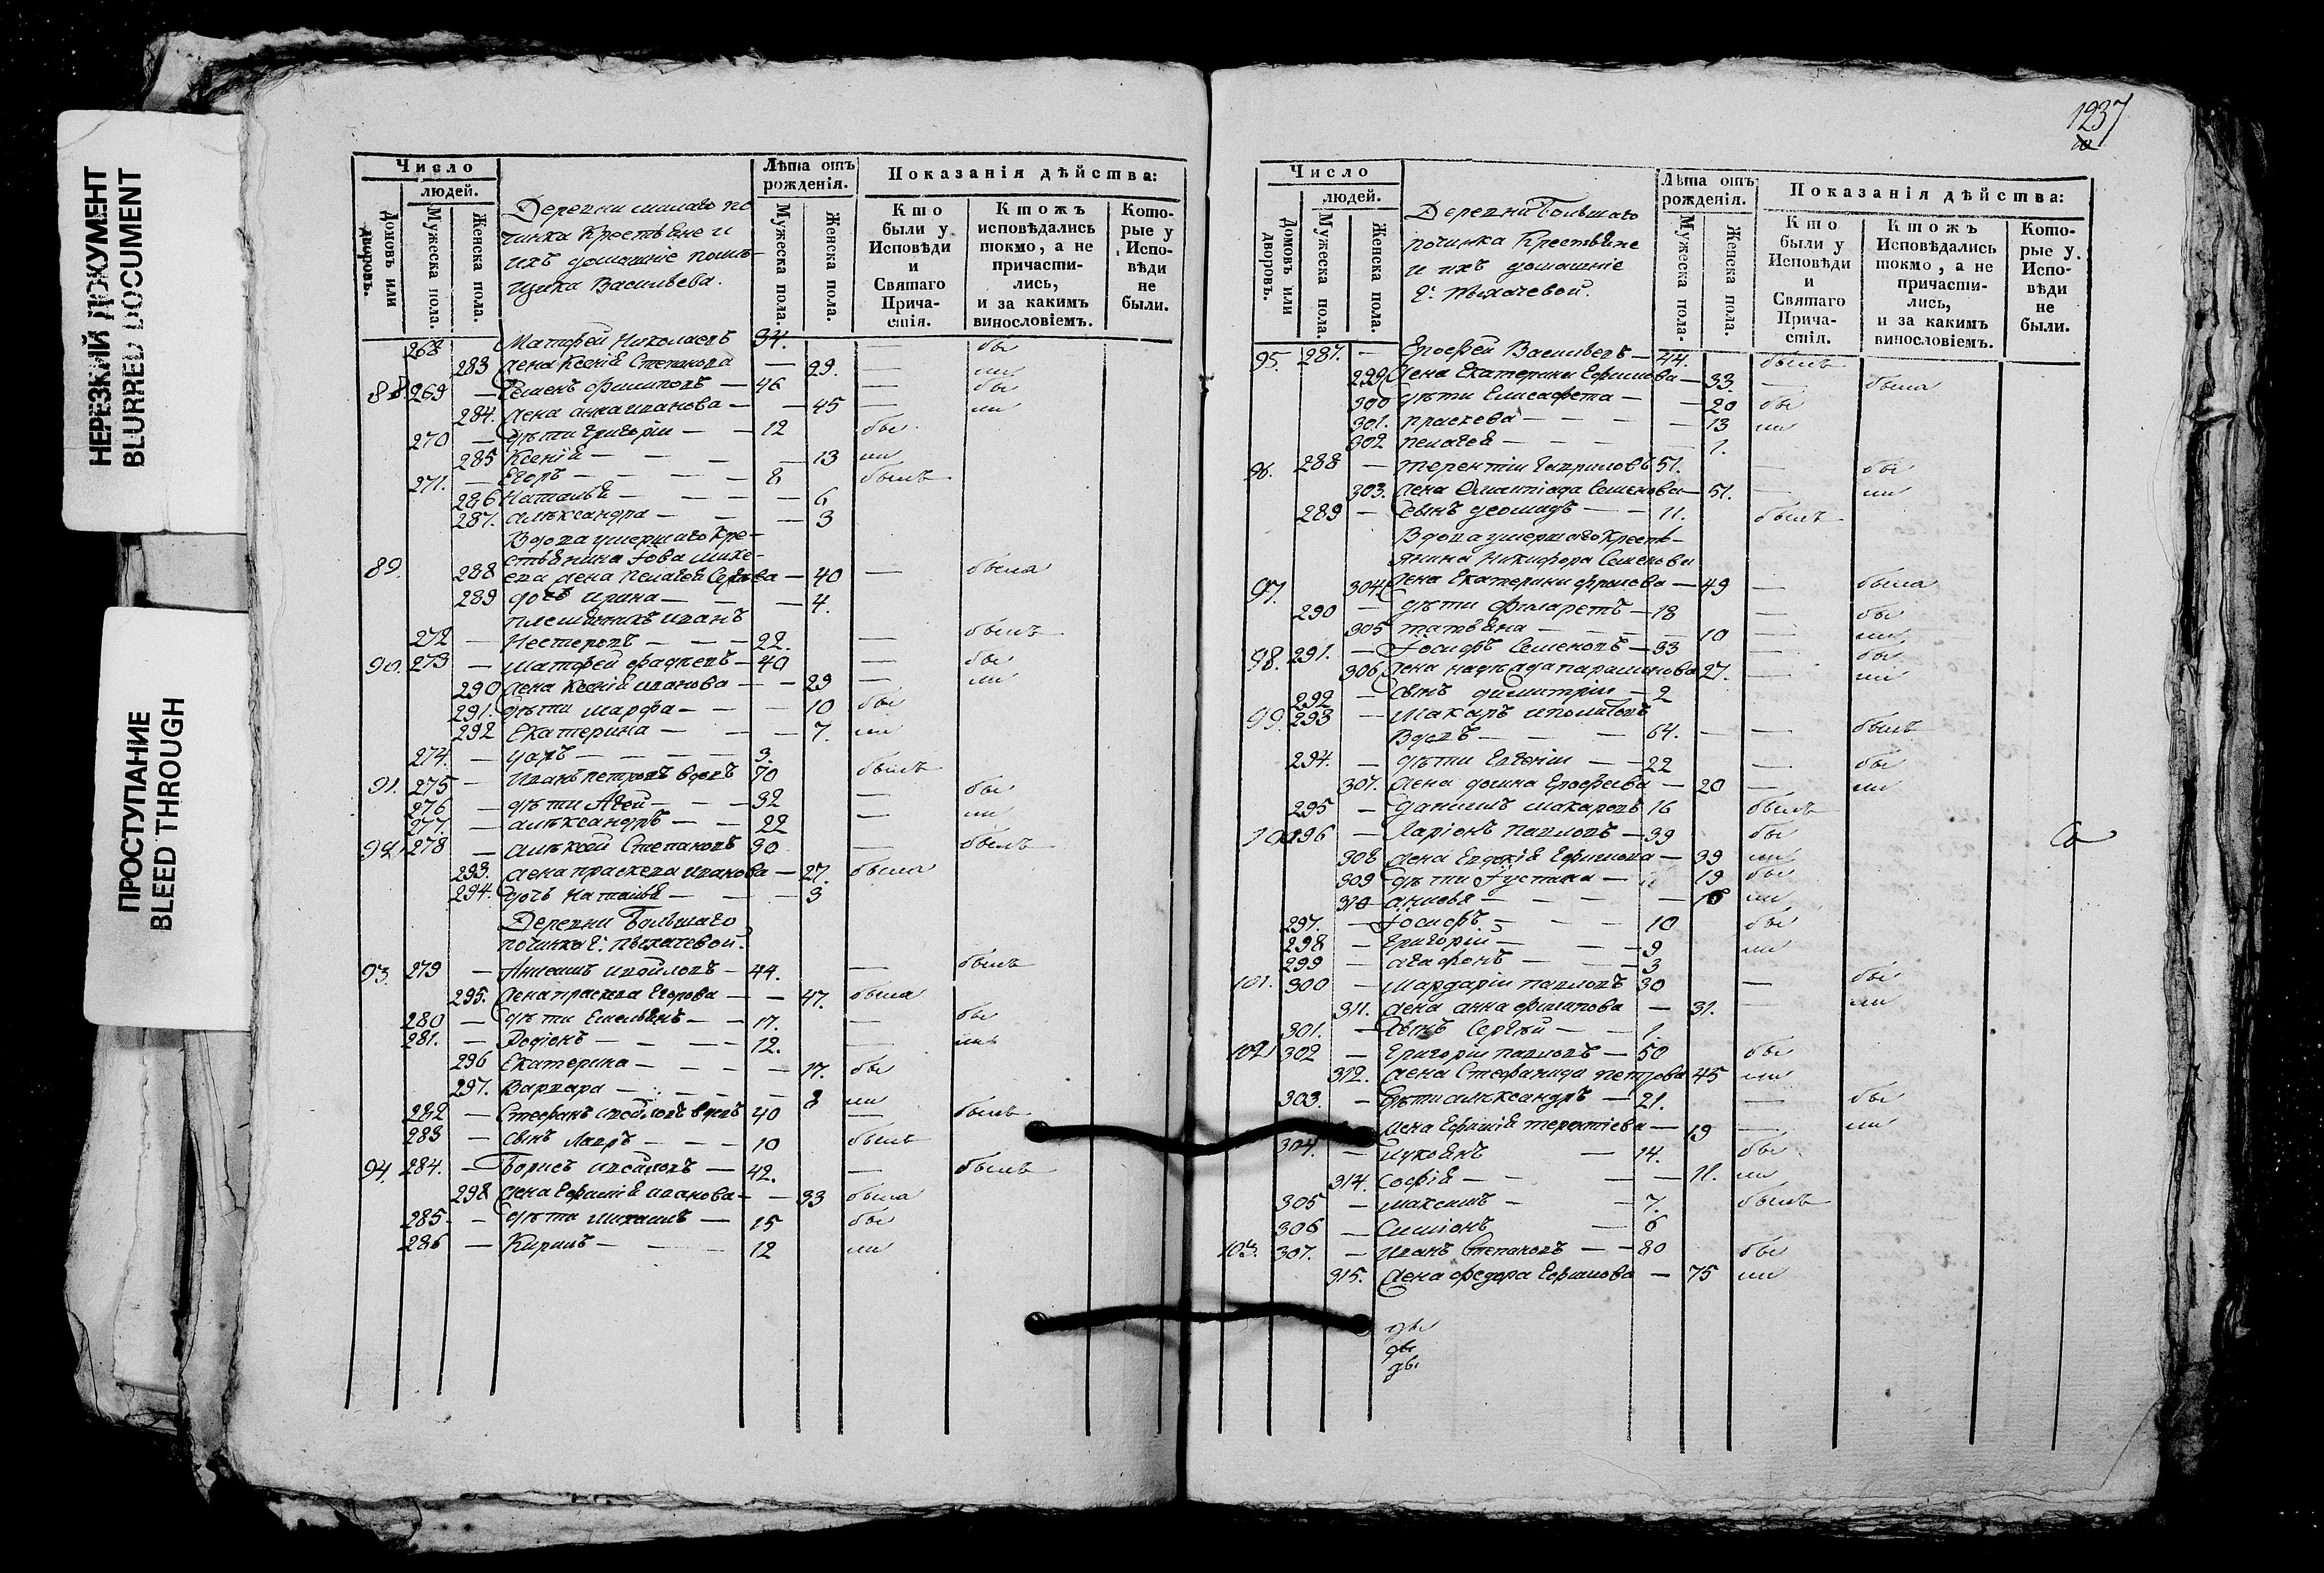 НЕРЕЗКИЙ ДОКУМЕНТ
BLURRED DOCUMENT
ПРОСТУПАНИЕ
BLEED THROUGH
Число
людей.
Домовъ или дворовъ.
Мужеска пола.
Женска пола.
Деревни малаго по
чинка Крестьяне и
ихъ домашніе помѣ-
щика Васильева.
Лѣта отъ рожденія.
Мужеска пола.
Женска пола.
Показанія дѣйства:
Кто были у Исповѣди и Святаго Прича-стія.
Ктожъ исповѣдались токмо, а не причасти-лись, и за какимъ винословіемъ.
Кото-рые у Испо-вѣди не были.
268 Матфей Николаевъ 34. — бы
283 жена Ксенія Степанова — 29. — ли
88. 269 — Семенъ Филиповъ — 46 — бы
284. жена анна иванова — — 45 — ли
270 — дѣти григорій — — 12 бы
285 Ксенія — — — — 13 ли
271. — Егоръ — — — — 8 былъ
286 Наталья — — — — 6
287. александра — — — 3
Вдова умершаго Кре-
стьянина Іова Михе-
89. 288 ева жена пелагея — 40 — была
289 дочь ирина — — — 4.
племянникъ иванъ
272 — Нестеровъ — — — 22. — былъ
90. 273 — матфей фадеевъ — 40 — бы
290 жена Ксенія иванова — — 29 — ли
291. дѣти марфа — — — 10 бы
292 Екатерина — — — 7. ли
274. — — — — 3.
91. 275 — Иванъ петровъ вдовъ 70 былъ
276 — дѣти — — — 32 — бы
277. — александръ — — 22 — ли
92. 278 — алексѣй Степановъ 30 — былъ
293. жена праскева иванова — 27. была
294. дочь наталья — — — 3
Деревни Большаго
починка г. пыхачевой.
93. 279 — — 44. — былъ
295. жена праскева Егорова — — 47. была
280 — дѣти Емельянъ — — 17. — бы
281. — Родіонъ — — — — 12. — ли
296 Екатерина — — — — 17. бы
297. Варвара — — — — 8 ли
282 — Стефанъ вдовъ 40 — былъ
283 — сынъ Лавръ — — — 10 былъ
94. 284. — Борисъ — 42. — былъ
298 жена Ефимія иванова — — 33 была
285. — дѣти михаилъ — 15 бы
286 — Кирилъ — — — 12 ли
1237
Число
людей.
Домовъ или дворовъ.
Мужеска пола.
Женска пола.
Деревни Большаго
починка Крестьяне
и ихъ домашніе
г. Пыхачевой.
Лѣта отъ рожденія.
Мужеска пола.
Женска пола.
Показанія дѣйства:
Кто были у Исповѣди и Святаго Прича-стія.
Ктожъ Исповѣдались токмо, а не причасти-лись, и за какимъ винословіемъ.
Кото-рые у Испо-вѣди не были.
95. 287. — Ерофей Васильевъ — 44. былъ
299 жена Екатерина Ефимова — 33. — была
300 дѣти Елисавета — — 20 бы
301. праскева — — — — 13 ли
302 пелагея — — — — 1.
96. 288 — терентій гавриловъ 51. — бы
303. жена Олимпіада Семенова — 51. — ли
289 — сынъ — — 11. былъ
Вдова умершаго Кресть-
янина Никифора Семенова
97. 304 жена Екатерина фролова — 49 — была
290 — дѣти Филаретъ — 18 — бы
305 татьяна — — — — 10 — ли
98. 291. — Іосифъ Семеновъ — 33 — бы
306 жена парамонова 27. — ли
292 — сынъ димитрій — 2
99. 293 — Макаръ иполитовъ
Вдовъ — — — 64. — — былъ
294. — дѣти Евгеній — — 22 — бы
307. жена домна Ерофеева — 20 — ли
295 — Данилъ макаровъ 16 былъ
100 296 — Ларіонъ павловъ — 39 бы
308 жена Евдокія Ефимова — 39 ли
309 дѣти Іустина — 19 бы
310 — — — — ли
297. — Іосифъ — — — 10 бы
298 — Григорій — — — 9 ли
299 — агафонъ — — — 3
101. 300 — мардарій павловъ 30 — бы
311. жена анна филипова — 31. — ли
301. — сынъ Сергѣй — — 1.
102 302 — Григорій павловъ — 50 бы
312. жена Стефанида петрова 45 ли
303. — дѣти александръ — 21. — бы
жена Ефимія терентіева — 19 — ли
304. — Лукьянъ — 14. бы
314. Софія — — — — 11. ли
305 — максимъ — — 7. былъ
306 — Симіонъ — 6
103. 307. — Иванъ Степановъ — — 80 бы
315. жена федора Ефимова — 75 ли